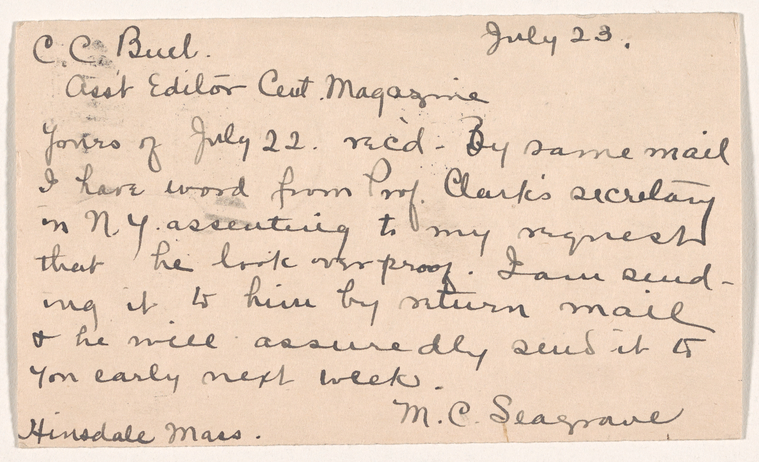 C. C. Buel. July 23.
Ass't Editor Cent. Magazine
Yours of July 22. rec'd - By same mail
I have word from Prof. Clark's secretary
in N.Y. assenting to my request
that he look over proof. I am send-
ing it to him by return mail
& he will assuredly send it to
you early next week.
M. C. Seagrave
Hinsdale Mass.